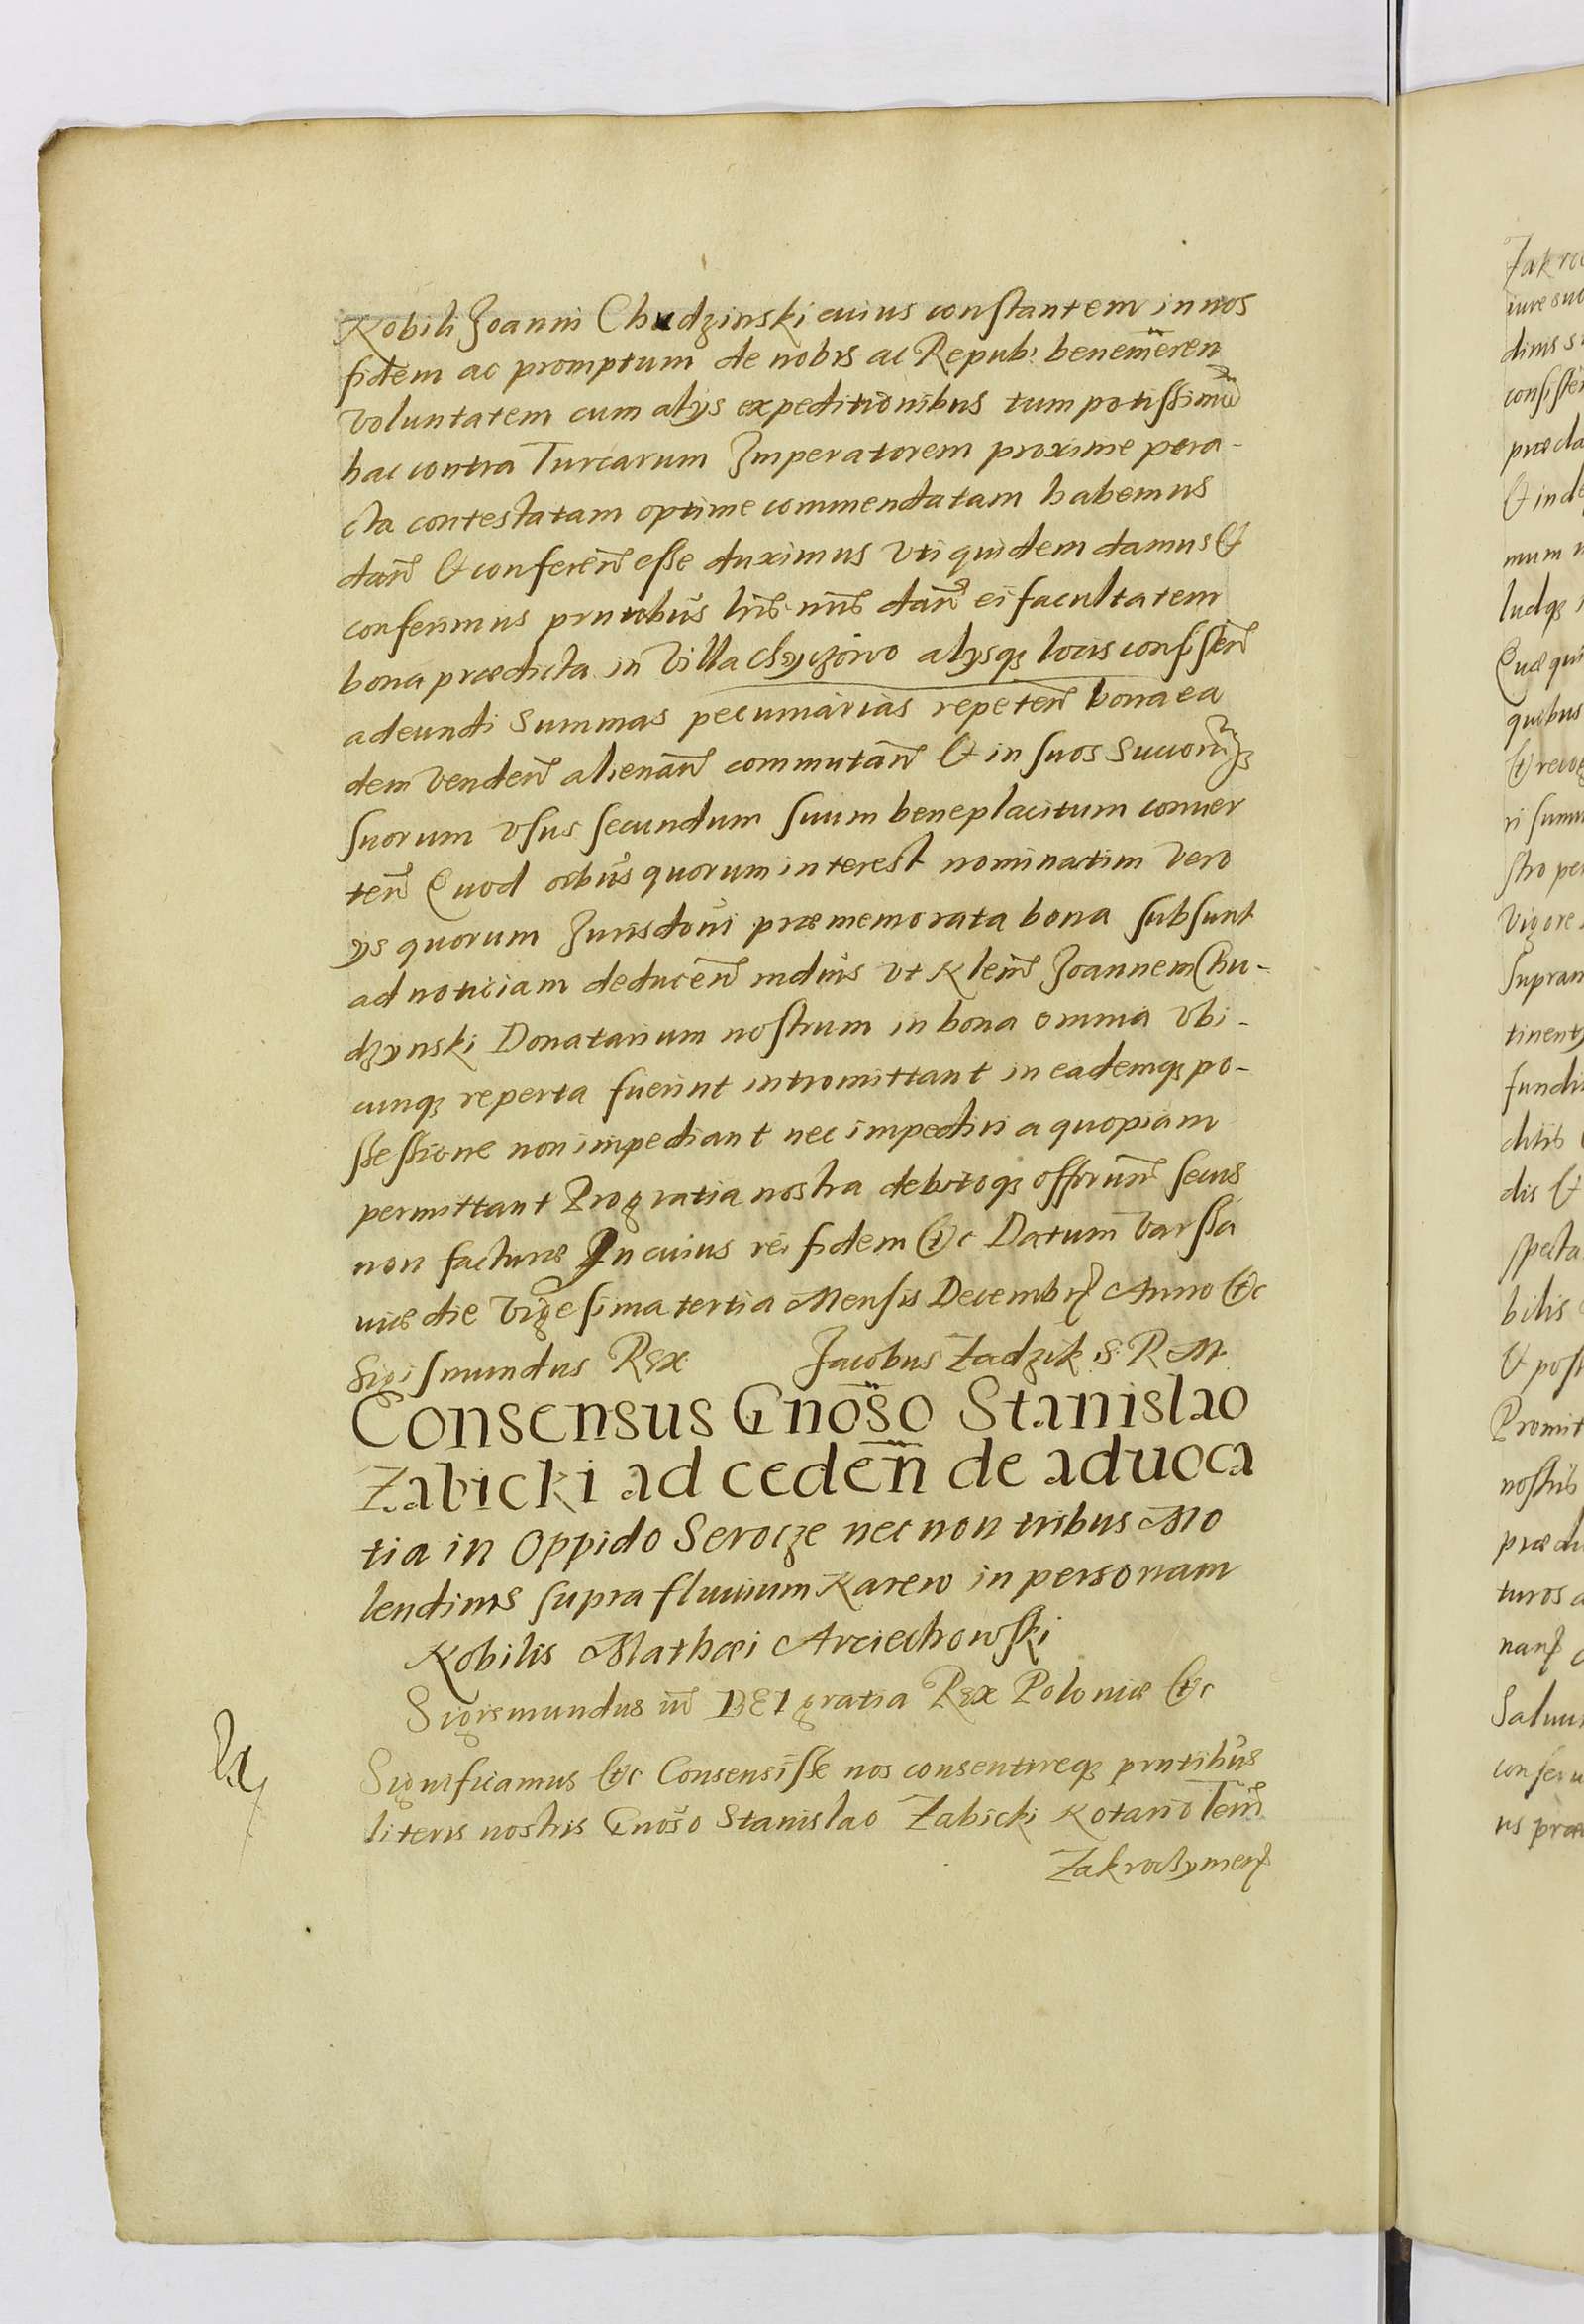 Nobili Joanni Chudzinski cuius constantem in nos
fidem ac promptum de nobis ac Repub: benemeren̄
voluntatem cum alÿs expeditionibus tum potissimū
hac contra Turcarum Imperatorem proxime pera-
cta contestatam optime commendatam habemus
dan̄ & conferen̄ esse duximus vti quidem damus &
conferimus pn̄tibus lrīs nr̄is dan̄ ei facultatem
bona prædicta in Villa alÿsq; locis consisten̄
adeundi summas pecuniarias repeten̄ bona ea
dem venden̄ alienan̄ commutan̄ & in suos
suorum vsus secundum suum beneplacitum conuer
ten̄ Quod oībus quorum interest nominatim vero
ÿs quorum Jurisdōni præmemorata bona subsunt
ad noticiam deducen̄ mdūs vt Joannem Chu-
dzynski Donatarium nostrum in bona omnia vbi-
cunq; reperta fuerint intromittant in eademq; po-
ssessione non impediant nec impediri a quopiam
permittant Pro gratia nostra debitoq; secus
non facturi In cuius rei fidem &c Datum Varssa
uiæ die Vigesima tertia Mensis Decembr̄ Anno &c
Sigismundus Rex Jacobus Zadzik S. R. M.
Consensus Gnōso Stanislao
Zabicki ad ceden̄ de aduoca
tia in Oppido Serocze nec non tribus Mo
lendinis supra fluuium Narew in personam
Nobilis Mathæi Arciechowski
Sigismundus iiī DEI gratia Rex Poloniæ &c
Significamus &c Consensisse nos consentireq; pn̄tibus
literis nostris Gnōso Stanislao Zabicki Notario Terrī
Zakroczymen̄
Zakro
iure suo
consiste
præcla
& inde
mum
ludq;
Quæ qui
quibus
& recog
ri summ
stro per
vigore
supran
tinentÿ
fundi
ditib
dis &
specta
bilis
& post
Promit
nostris
prædi
turos
nan̄
Saluis
conseru
us præ